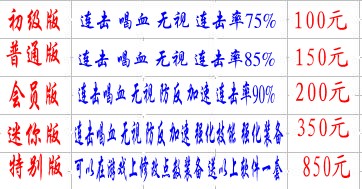 初级版 连击 喝血 无视 连击率75% 100元
普通版 连击 喝血 无视 连击率85% 150元
会员版 连击 喝血 无视 防反 加速 连击率90% 200元
迷你版 连击喝血 无视 防反 加速 强化技能 强化装备 350元
特别版 可以在游戏上修改点数装备 送以上软件一套 850元